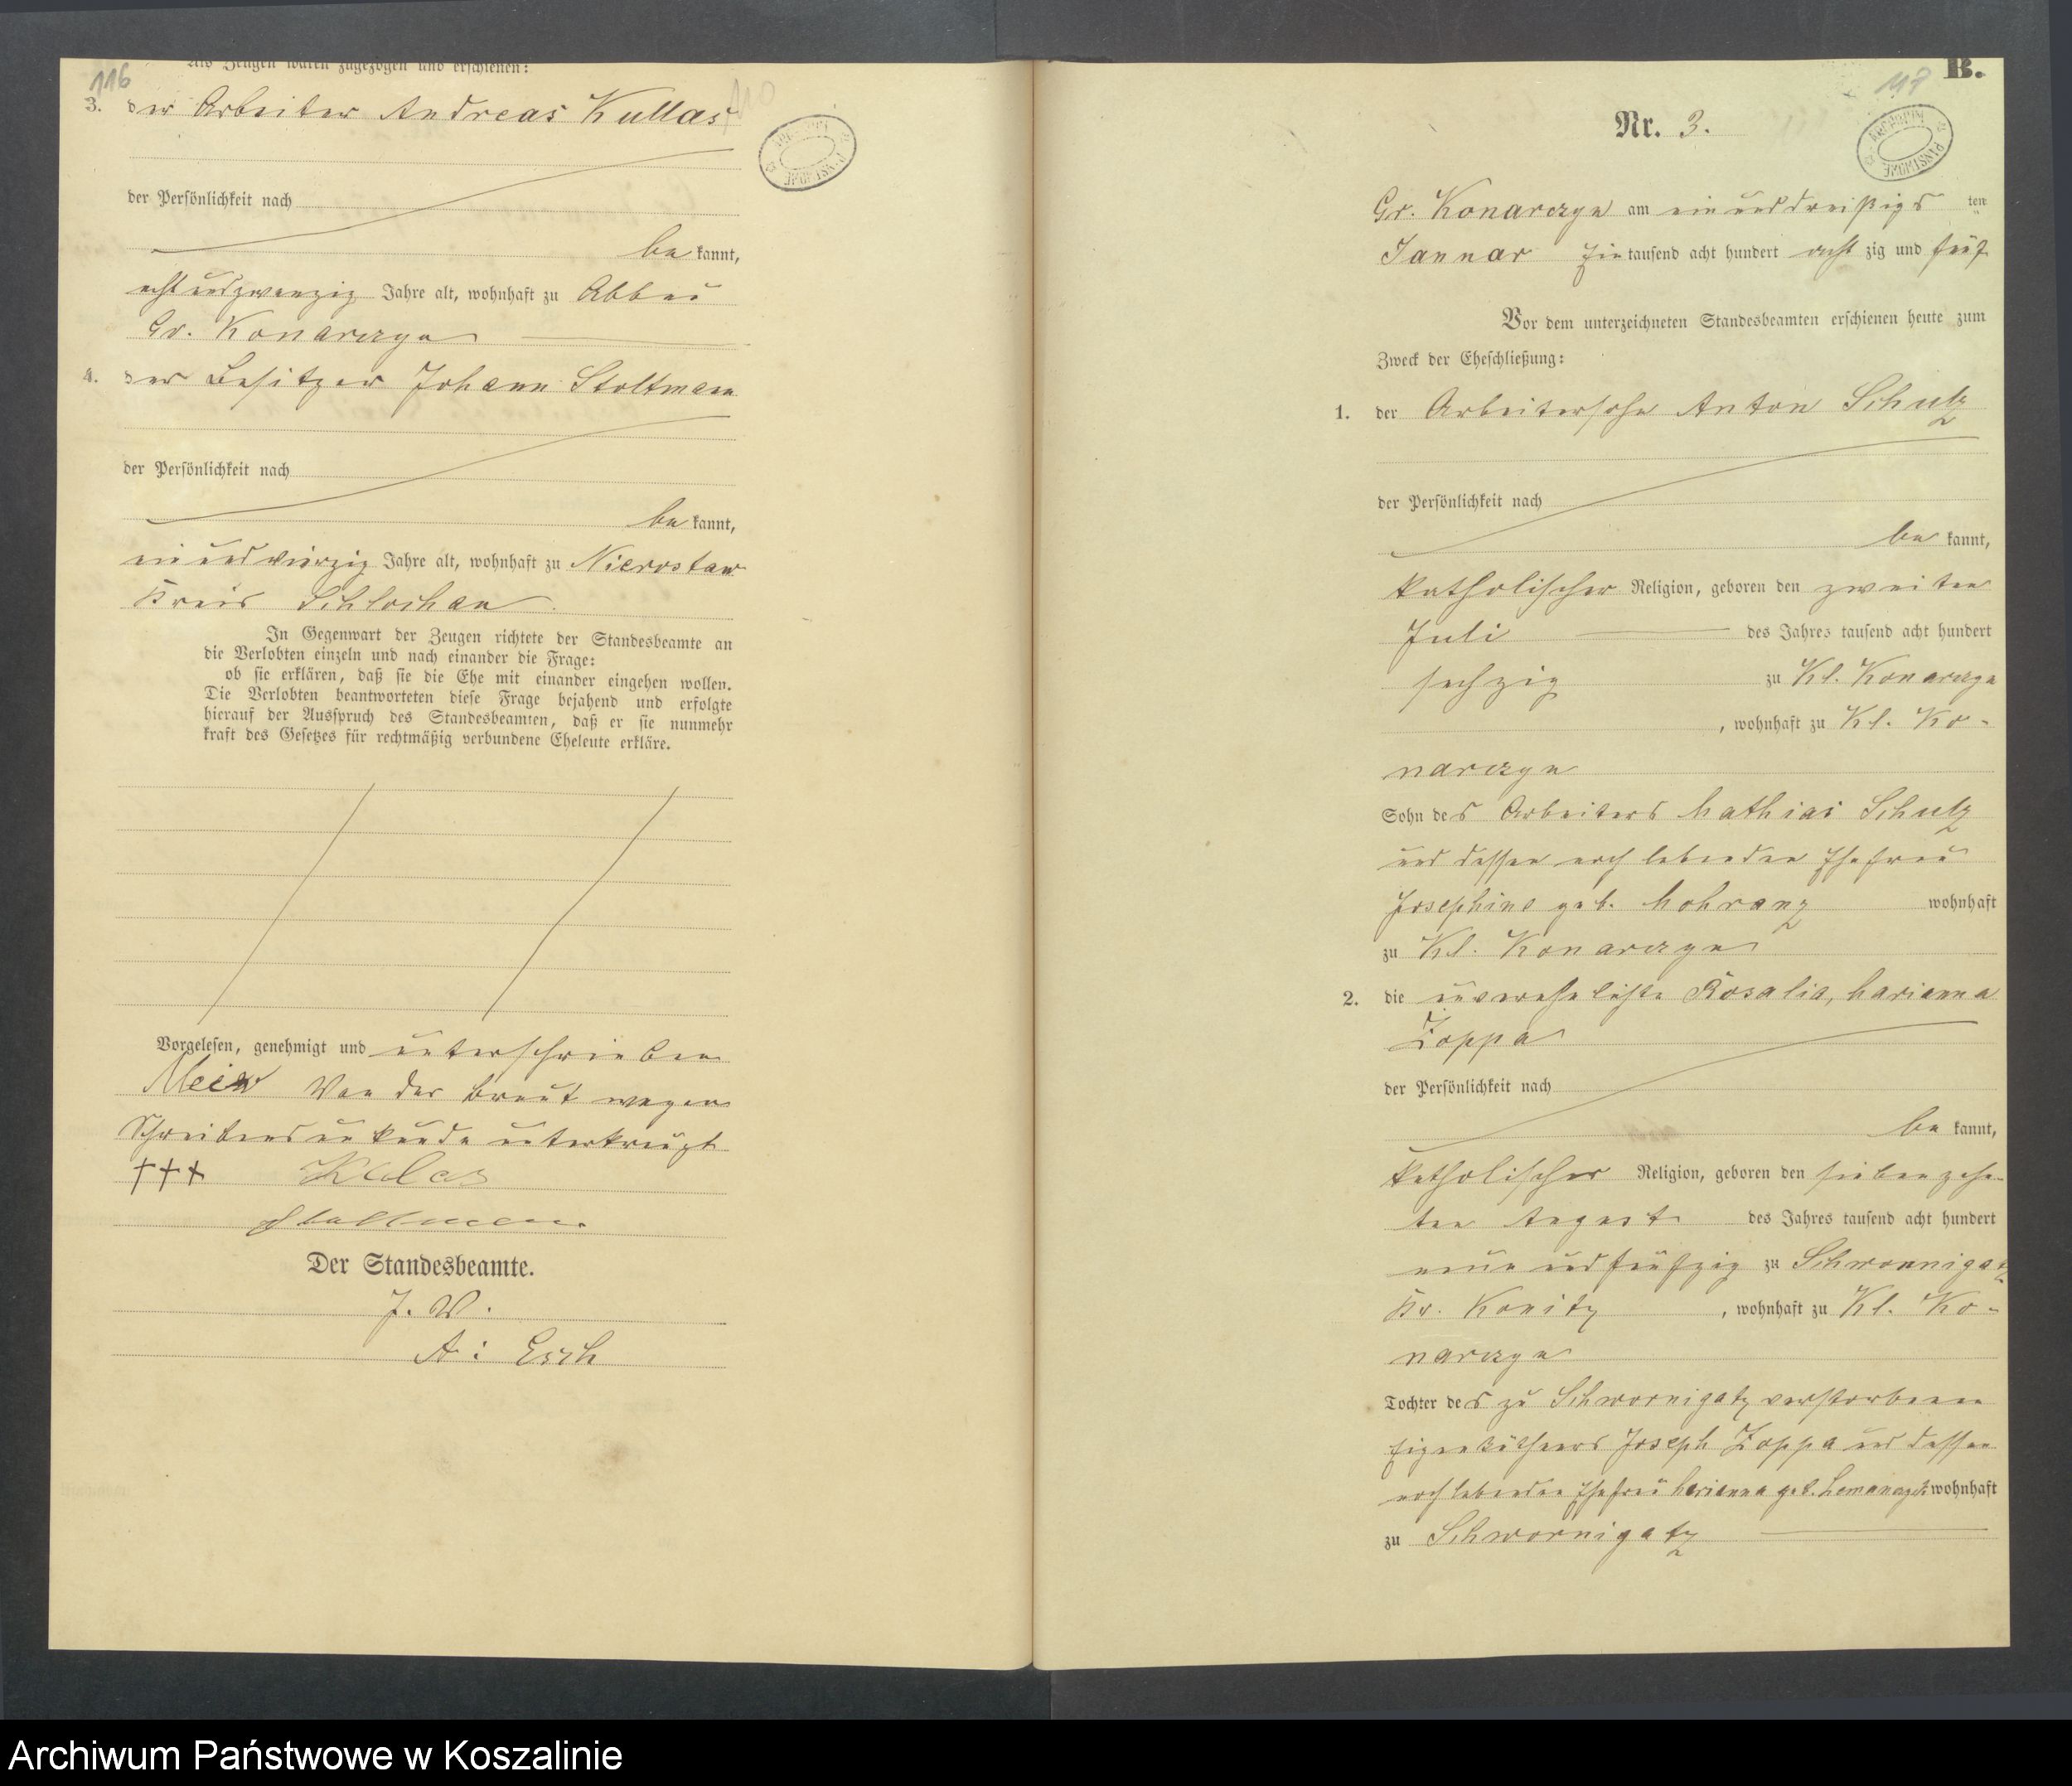 116
Als Zeugen waren zugezogen und erschienen:
3. der Arbeiter Andreas Kullas
der Persönlichkeit nach
be kannt,
acht und zwanzig Jahre alt, wohnhaft zu Abbau
Gr. Konarczyn
4. der Besitzer Johann Stoltmann
der Persönlichkeit nach
be kannt,
ein und vierzig Jahre alt, wohnhaft zu Nierostaw
Kreis Schlochau.
In Gegenwart der Zeugen richtete der Standesbeamte an
die Verlobten einzeln und nach einander die Frage:
ob sie erklären, daß sie die Ehe mit einander eingehen wollen.
Die Verlobten beantworteten diese Frage bejahend und erfolgte
hierauf der Ausspruch des Standesbeamten, daß er sie nunmehr
kraft des Gesetzes für rechtmäßig verbundene Eheleute erkläre.
Vorgelesen, genehmigt und unterschrieben
Von der Braut wegen
Schreibensunkunde unterkreuzt
+++
Der Standesbeamte.
J. V.
A: Esch
B.
Nr. 3.
Gr. Konarczyn am ein und dreißigs ten
Januar Ein tausend acht hundert acht zig und fünf
Vor dem unterzeichneten Standesbeamten erschienen heute zum
Zweck der Eheschließung:
1. der Arbeitersohn Anton Schulz
der Persönlichkeit nach
be kannt,
katholischer Religion, geboren den zweiten
Juli des Jahres tausend acht hundert
sechzig zu Kl. Konarczyn
, wohnhaft zu Kl. Ko-
narczyn
Sohn des Arbeiters Mathias Schulz
und dessen noch lebenden Ehefrau
Josephine geb. Mohranz wohnhaft
zu Kl. Konarczyn
2. die unverehelichte Rosalia, Marianna
Zoppa
der Persönlichkeit nach
be kannt,
katholischer Religion, geboren den siebenzehn-
ten August des Jahres tausend acht hundert
neun und fünfzig zu Schwornigatz
Kr. Konitz, wohnhaft zu Kl. Ko-
narczyn
Tochter des zu Schwornigatz verstorbenen
Eigenkäthners Joseph Zoppa und dessen
noch lebenden Ehefrau Marianna geb. wohnhaft
zu Schwornigatz
Archiwum Państwowe w Koszalinie